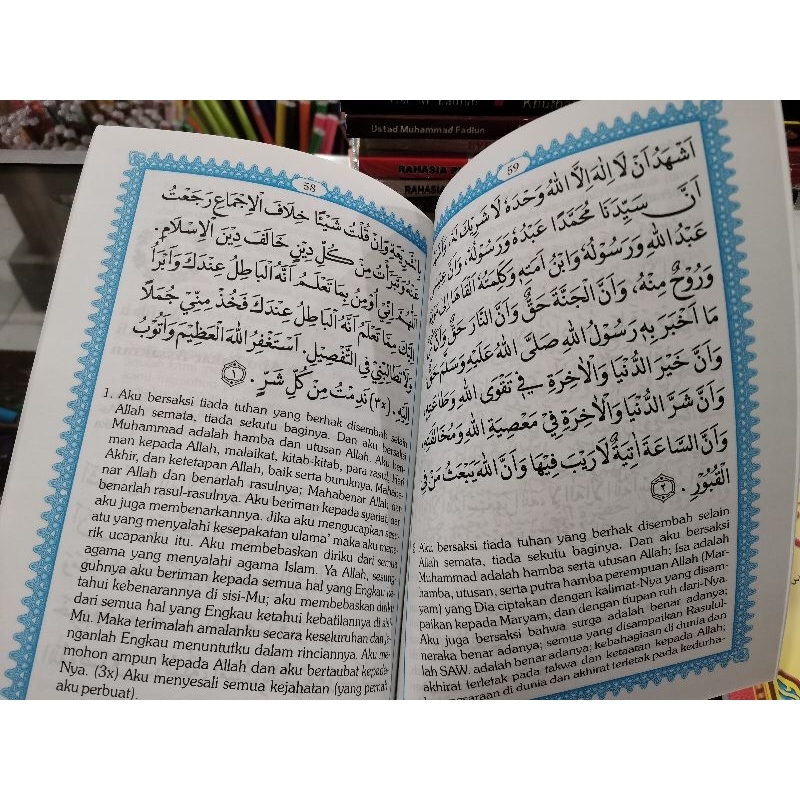 Ustad Muhammad Fadlun
RAHASIA
RAHASIA
58
بِالشَّرِيْعَةِ وَاِنْ قُلْتُ شَيْئًا خِلَافَ الْاِجْمَاعِ رَجَعْتُ
عَنْهُ وَتَبَرَّأْتُ مِنْ كُلِّ دِيْنٍ خَالَفَ دِيْنَ الْاِسْلَامِ.
اَللّٰهُمَّ اِنِّيْ اُوْمِنُ بِمَا تَعْلَمُ اَنَّهُ الْبَاطِلُ عِنْدَكَ وَاَبْرَأُ
اِلَيْكَ مِمَّا تَعْلَمُ اَنَّهُ الْبَاطِلُ عِنْدَكَ فَخُذْ مِنِّيْ جُمَلًا
وَلَا تُطَالِبْنِيْ فِي التَّفْصِيْلِ. اَسْتَغْفِرُ اللّٰهَ الْعَظِيْمَ وَاَتُوْبُ
اِلَيْهِ. (٣x) نَدِمْتُ مِنْ كُلِّ شَرٍّ. ١
1. Aku bersaksi tiada tuhan yang berhak disembah selain
Allah semata, tiada sekutu baginya. Dan aku bersaksi
Muhammad adalah hamba dan utusan Allah. Aku
man kepada Allah, malaikat, kitab-kitab, para rasul, Hari
Akhir, dan ketetapan Allah, baik serta buruknya.
nar Allah dan benarlah rasulnya; Mahabenar Allah,
benarlah rasul-rasulnya. Aku beriman kepada syariat,
aku juga membenarkannya. Jika aku mengucapkan
atu yang menyalahi kesepakatan ulama' maka aku
rik ucapanku itu. Aku membebaskan diriku dari semua
agama yang menyalahi agama Islam. Ya Allah,
guhnya aku beriman kepada semua hal yang Engkau
tahui kebenarannya di sisi-Mu; aku membebaskan
dari semua hal yang Engkau ketahui kebatilannya di
Mu. Maka terimalah amalanku secara keseluruhan dan
nganlah Engkau menuntutku dalam rinciannya. Aku
mohon ampun kepada Allah dan aku bertaubat kepada-
Nya. (3x) Aku menyesali semua kejahatan (yang pernah
aku perbuat).
59
اَشْهَدُ اَنْ لَا اِلٰهَ اِلَّا اللّٰهُ وَحْدَهُ لَا شَرِيْكَ لَهُ،
اَنَّ سَيِّدَنَا مُحَمَّدًا عَبْدُهُ وَرَسُوْلُهُ، وَاَنَّ عِيْسَى
عَبْدُ اللّٰهِ وَرَسُوْلُهُ وَابْنُ اَمَتِهِ وَكَلِمَتُهُ اَلْقَاهَا اِلَى
وَرُوْحٌ مِنْهُ، وَاَنَّ الْجَنَّةَ حَقٌّ وَاَنَّ النَّارَ حَقٌّ وَاَنَّ
مَا اَخْبَرَ بِهِ رَسُوْلُ اللّٰهِ صَلَّى اللّٰهُ عَلَيْهِ وَسَلَّمَ حَقٌّ
وَاَنَّ خَيْرَ الدُّنْيَا وَالْاٰخِرَةِ فِيْ تَقْوَى اللّٰهِ وَطَاعَتِهِ،
وَاَنَّ شَرَّ الدُّنْيَا وَالْاٰخِرَةِ فِيْ مَعْصِيَةِ اللّٰهِ وَمُخَالَفَتِهِ،
وَاَنَّ السَّاعَةَ اٰتِيَةٌ لَا رَيْبَ فِيْهَا وَاَنَّ اللّٰهَ يَبْعَثُ مَنْ فِى
الْقُبُوْرِ. ٢
Aku bersaksi tiada tuhan yang berhak disembah selain
Allah semata, tiada sekutu baginya. Dan aku bersaksi
Muhammad adalah hamba serta utusan Allah; Isa adalah
hamba, utusan, serta putra hamba perempuan Allah (Mar-
yam) yang Dia ciptakan dengan kalimat-Nya yang disam-
paikan kepada Maryam, dan dengan tiupan ruh dari-Nya.
Aku juga bersaksi bahwa surga adalah benar adanya;
neraka benar adanya; semua yang disampaikan Rasulul-
lah SAW. adalah benar adanya; kebahagiaan di dunia dan
akhirat terletak pada takwa dan ketaatan kepada Allah;
di dunia dan akhirat terletak pada kedurha-